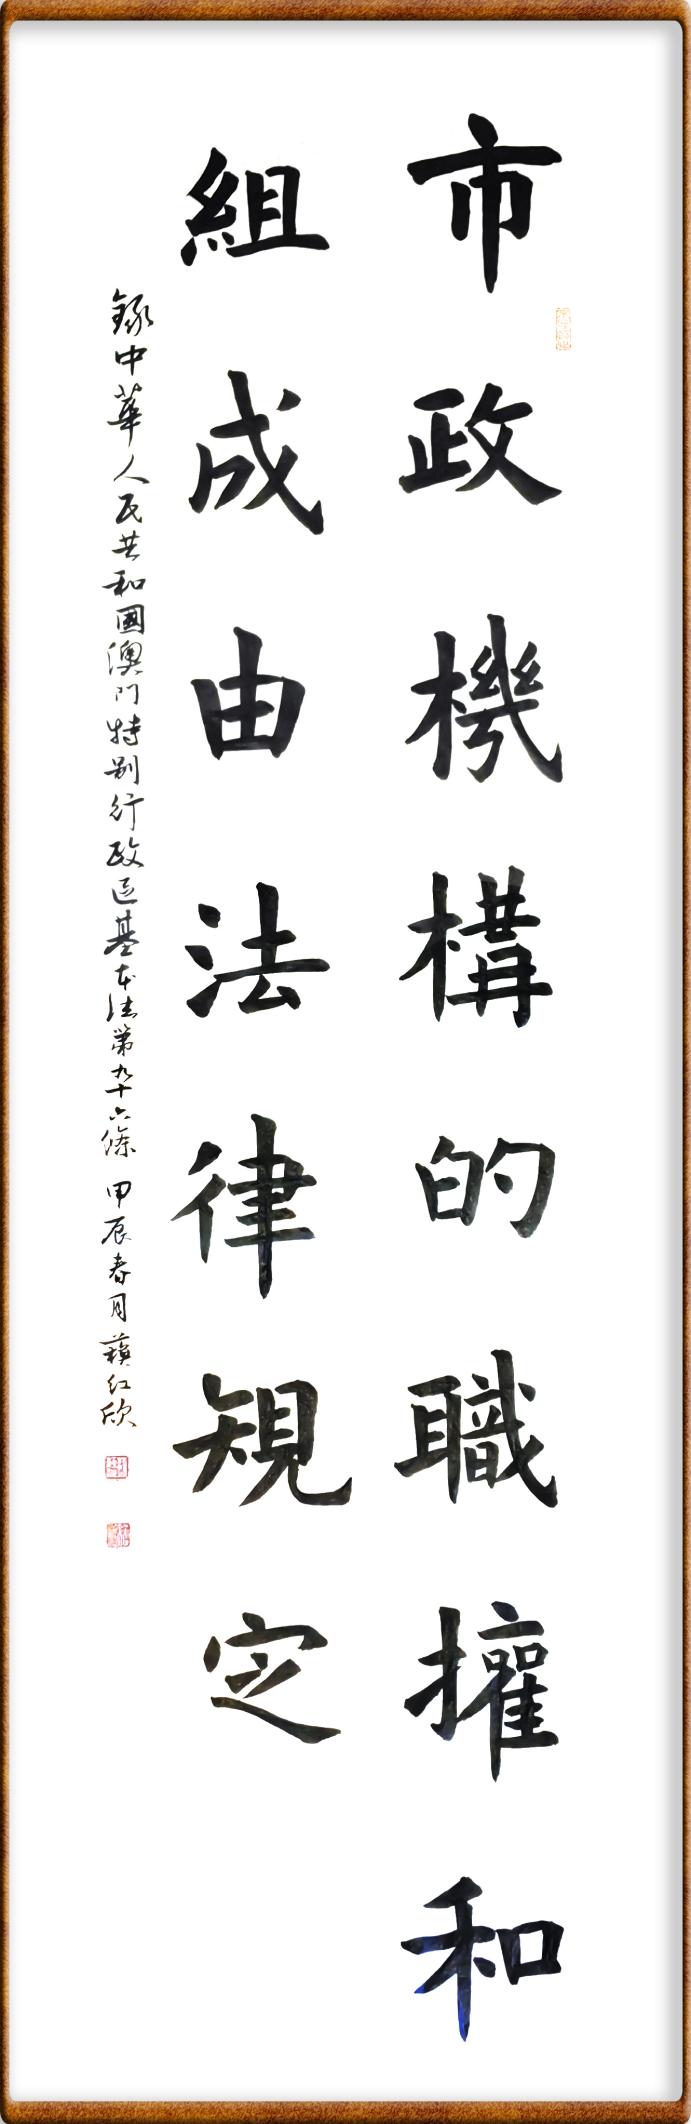 市政機構的職權和
組成由法律規定
錄中華人民共和國澳門特別行政區基本法第九十六條 甲辰春月蘇红欣